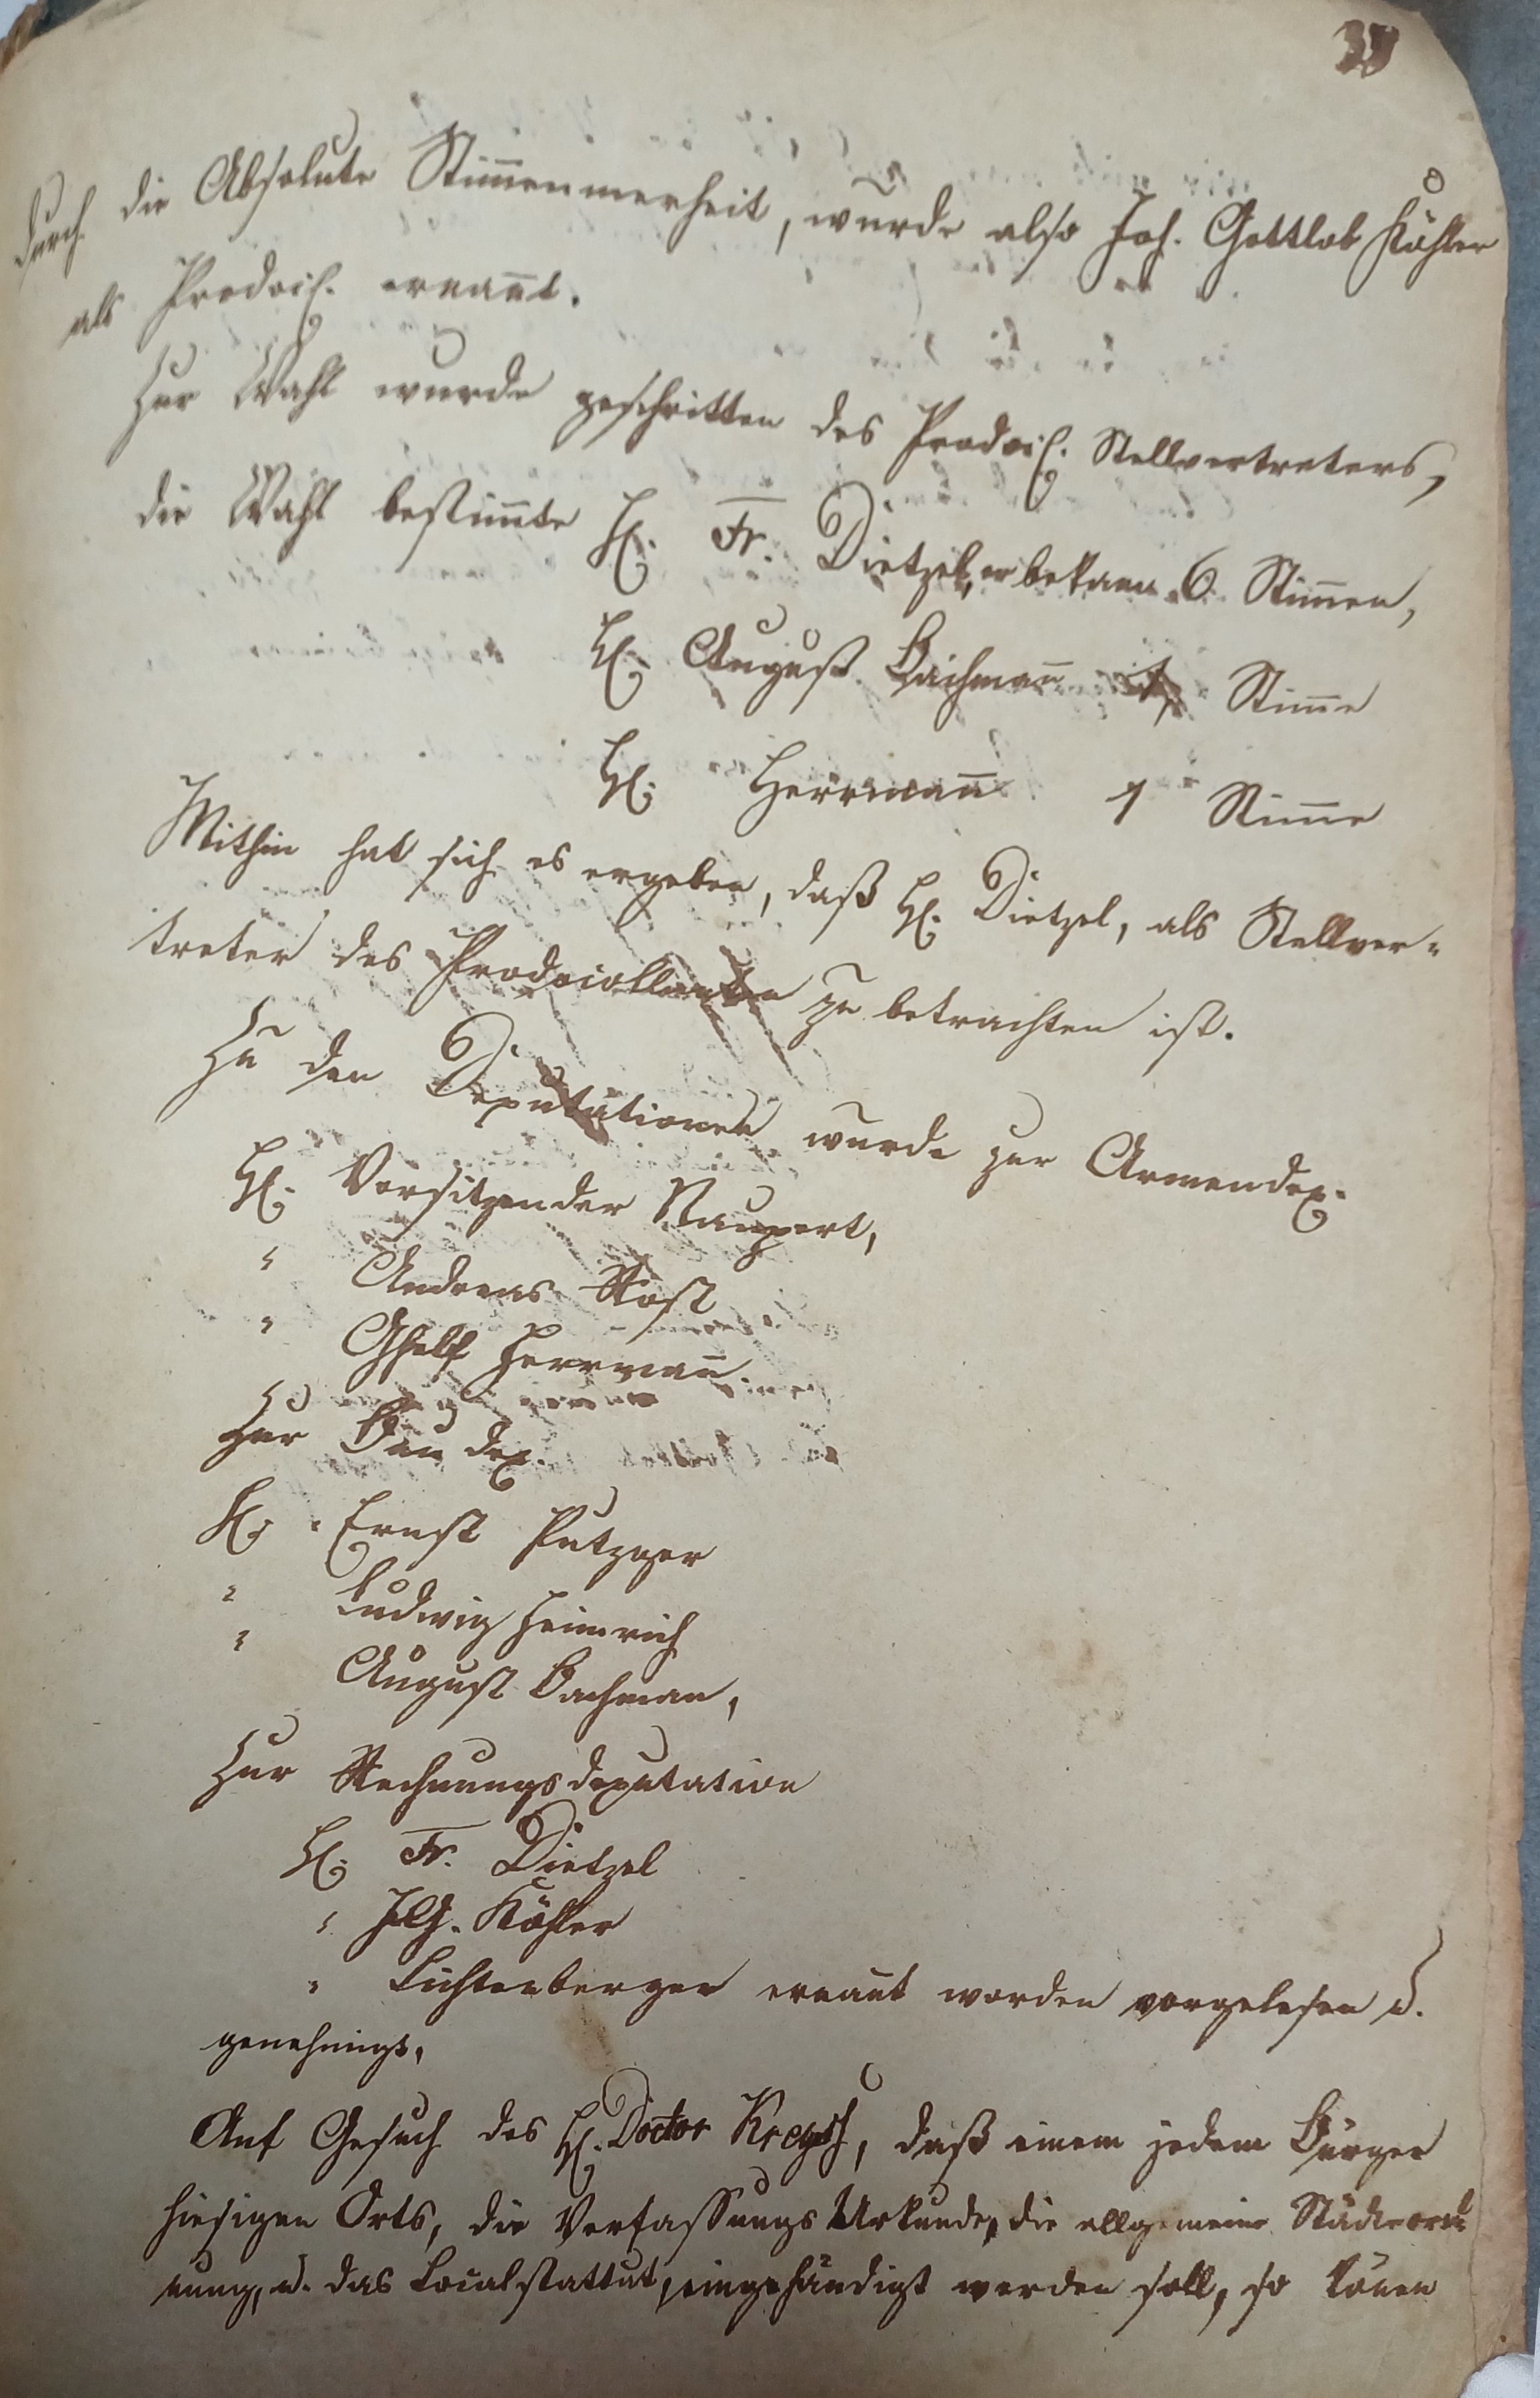 durch die Absolute Stim̄enmerheit, wurde also Joh. Gottlob Köhler
als Prodocl. ernan̄t.
Zur Wahl wurde geschritten des Prodocl. Stellvertreters,
die Wahl bestim̄te H. Fr. Dietzel, er bekam 6 Stim̄en,
H. August Bachman̄ 1 Stim̄e
H. Herrman̄ 1 Stim̄e
Mithin hat sich es ergeben, daß H. Dietzel, als Stellver-
treter des Prodocollanten zu betrachten ist.
Zu den Deputationen wurde zur Armendep.
H. Vorsitzender Naupert,
" Andreas Rost
" Ghelf Herrman̄.
Zur Bau dep.
H. Ernst Putzger
" Ludwig Heinrich
" August Bachman,
Zur Rechnungsdeputation
H. Fr. Dietzel
" J.G. Köhler
" Lichtenberger ernan̄t worden vorgelesen u.
genehmigt.
Auf Gesuch des H. Doctor , daß einem jedem Bürger
hiesigen Orts, die Verfassungs Urkunde, die allgemeine Städteord
nung, u. das Localstattut, eingehändigt werden soll, so kön̄en